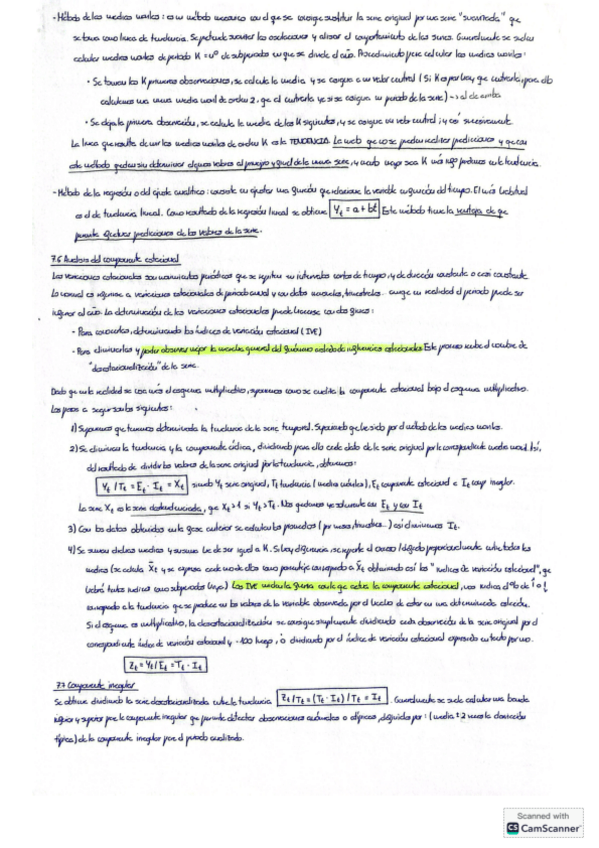 - Método de las medias móviles: es un método mecánico con el que se consigue sustituir la serie original por una serie "suavizada" que
se toma como línea de tendencia. Se pretende suavizar las oscilaciones y alisar el comportamiento de las series. Generalmente se suelen
calcular medias móviles de periodo K = nº de subperiodos en que se divide el año. Procedimiento para calcular las medias móviles:
• Se toman las K primeras observaciones, se calcula la media y se asigna a un valor central (Si K es par hay que centrarla, para ello
calculamos una nueva media móvil de orden 2, que al centrarla ya si se asigna un periodo de la serie)
• Se deja la primera observación, se calcula la media de las K siguientes, y se asigna un valor central; y así sucesivamente
La línea que resulta de unir las medias móviles de orden K es la TENDENCIA. que no se pueden realizar predicciones y que con
este método quedan sin determinar algunos valores al principio y al final de la nueva serie, y cuanto mayor sea K más se produce en la tendencia.
- Método de la regresión o del ajuste analítico: consiste en ajustar una función que relacione la variable en función del tiempo. El más habitual
es el de tendencia lineal. Como resultado de la regresión lineal se obtiene Yt = a + bt Este método tiene la ventaja de que
permite efectuar predicciones de los valores de la serie.
7.6 Análisis del componente estacional
Las variaciones estacionales son movimientos periódicos que se repiten en intervalos cortos de tiempo, y de duración constante o casi constante.
Lo normal es referirse a variaciones estacionales de periodo anual y con datos mensuales, trimestrales... aunque en realidad el periodo puede ser
inferior al año. La determinación de las variaciones estacionales puede hacerse con dos fines:
• Para conocerlas, determinando los índices de variación estacional (IVE)
• Para eliminarlas y poder observar mejor la marcha general del fenómeno aislado de influencias estacionales. Este proceso recibe el nombre de
"desestacionalización" de la serie.
Dado que en la realidad se usa más el esquema multiplicativo, veremos como se analiza la componente estacional bajo el esquema multiplicativo.
Los pasos a seguir son los siguientes:
1) Suponemos que tenemos determinada la tendencia de la serie temporal. Suponiendo que ha sido por el método de las medias móviles.
2) Se eliminan la tendencia y la componente cíclica, dividiendo para ello cada dato de la serie original por la correspondiente media móvil. Así,
del resultado de dividir los valores de la serie original por la tendencia, obtenemos:
Yt / Tt = Et · It = Xt siendo Yt serie original, Tt tendencia (medias móviles), Et componente estacional e It comp irregular.
La serie Xt es la serie destendenciada, que Xt > 1 si Yt > Tt. Nos quedamos ya solamente con Et y con It
3) Con los datos obtenidos en la fase anterior se calculan los promedios (por meses, trimestres...) así eliminamos It.
4) Se suman dichas medias y su suma ha de ser igual a K. Si hay diferencia, se reparte el exceso/defecto proporcionalmente entre todas las
medias (se calcula X̄t y se expresa cada una de ellas como porcentaje con respecto a X̄t obteniendo así los "índices de variación estacional", que
habrá tantos índices como subperiodos haya). Los IVE miden la fuerza con la que actúa la componente estacional, nos indica el % de ↑ o ↓
con respecto a la tendencia que se produce en los valores de la variable observada por el hecho de estar en una determinada estación.
Si el esquema es multiplicativo, la desestacionalización se consigue simplemente dividiendo cada observación de la serie original por el
correspondiente índice de variación estacional y · 100 luego, ó dividiendo por el índice de variación estacional expresado en tanto por uno.
Zt = Yt / Et = Tt · It
7.7 Componente irregular
Se obtiene dividiendo la serie desestacionalizada entre la tendencia Zt / Tt = (Tt · It) / Tt = It. Generalmente se suele calcular una banda
inferior y superior para la componente irregular que permite detectar observaciones anómalas o atípicas, definida por: (media ± 2 veces la desviación
típica) de la componente irregular para el periodo analizado.
Scanned with
CS CamScanner